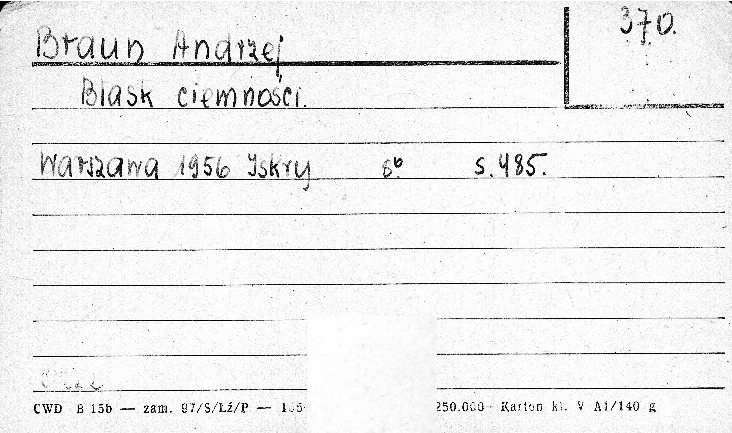 370.
Braun Andrzej
Blask ciemności.
Warszawa 1956 Iskry 8° s. 485.
CWD B 15b — zam. 97/S/Lź/P — 250.000 Karton kl. V A1/140 g